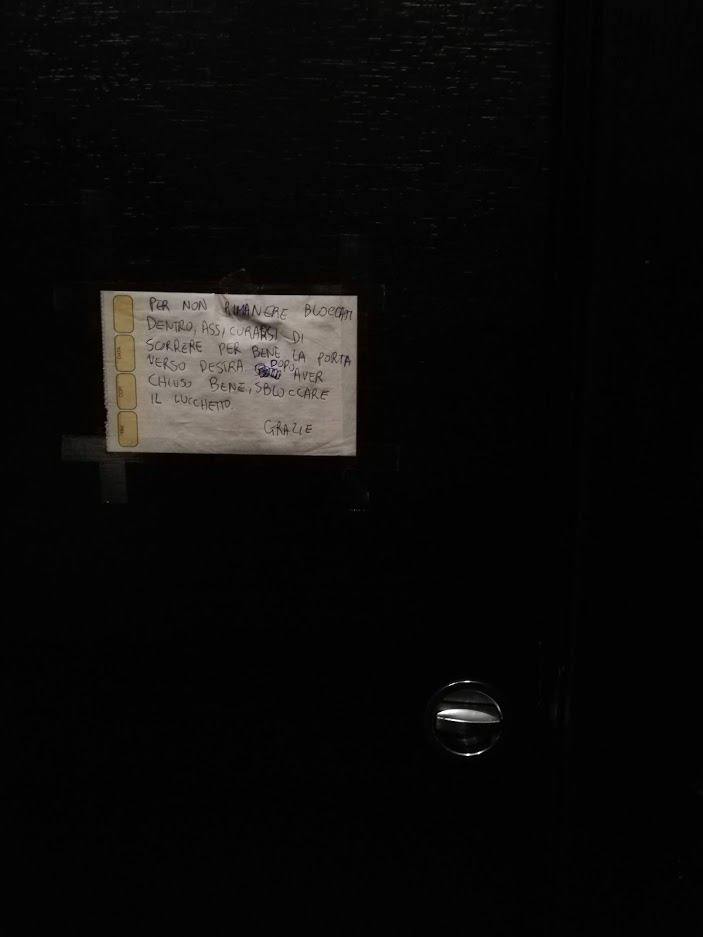 PER NON RIMANERE BLOCCATI
DENTRO, ASSICURARSI DI
SCORRERE PER BENE LA PORTA
VERSO DESTRA. DOPO AVER
CHIUSO BENE, SBLOCCARE
IL LUCCHETTO.
GRAZIE